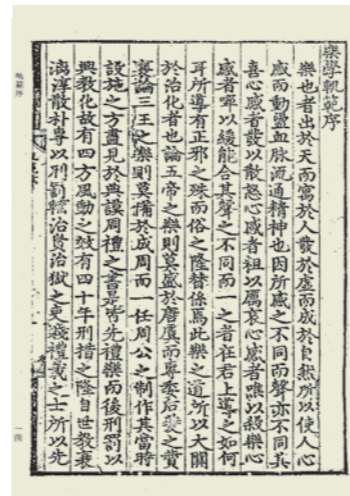 樂學軌範序
樂也者出於天而寓於人發於虛而成於自然所以使人心
感而動盪血脉流通精神也因所感之不同而聲亦不同其
喜心感者發以散怒心感者粗以厲哀心感者噍以殺樂心
感者嘽以緩能合其聲之不同而一之者在君上導之如何
耳所導有正邪之殊而俗之隆替係焉此樂之道所以大關
於治化者也論五帝之樂則莫盛於唐虞而專委后夔之贊
襄論三王之樂則莫備於成周而一任周公之制作其當時
設施之方盡見於典謨周禮之書是皆先禮樂而後刑罰以
興教化故有四方風動之效有四十年刑措之隆自世教衰
漓淳散朴專以刑罰轄治貴治獄之吏癈禮義之士所以先